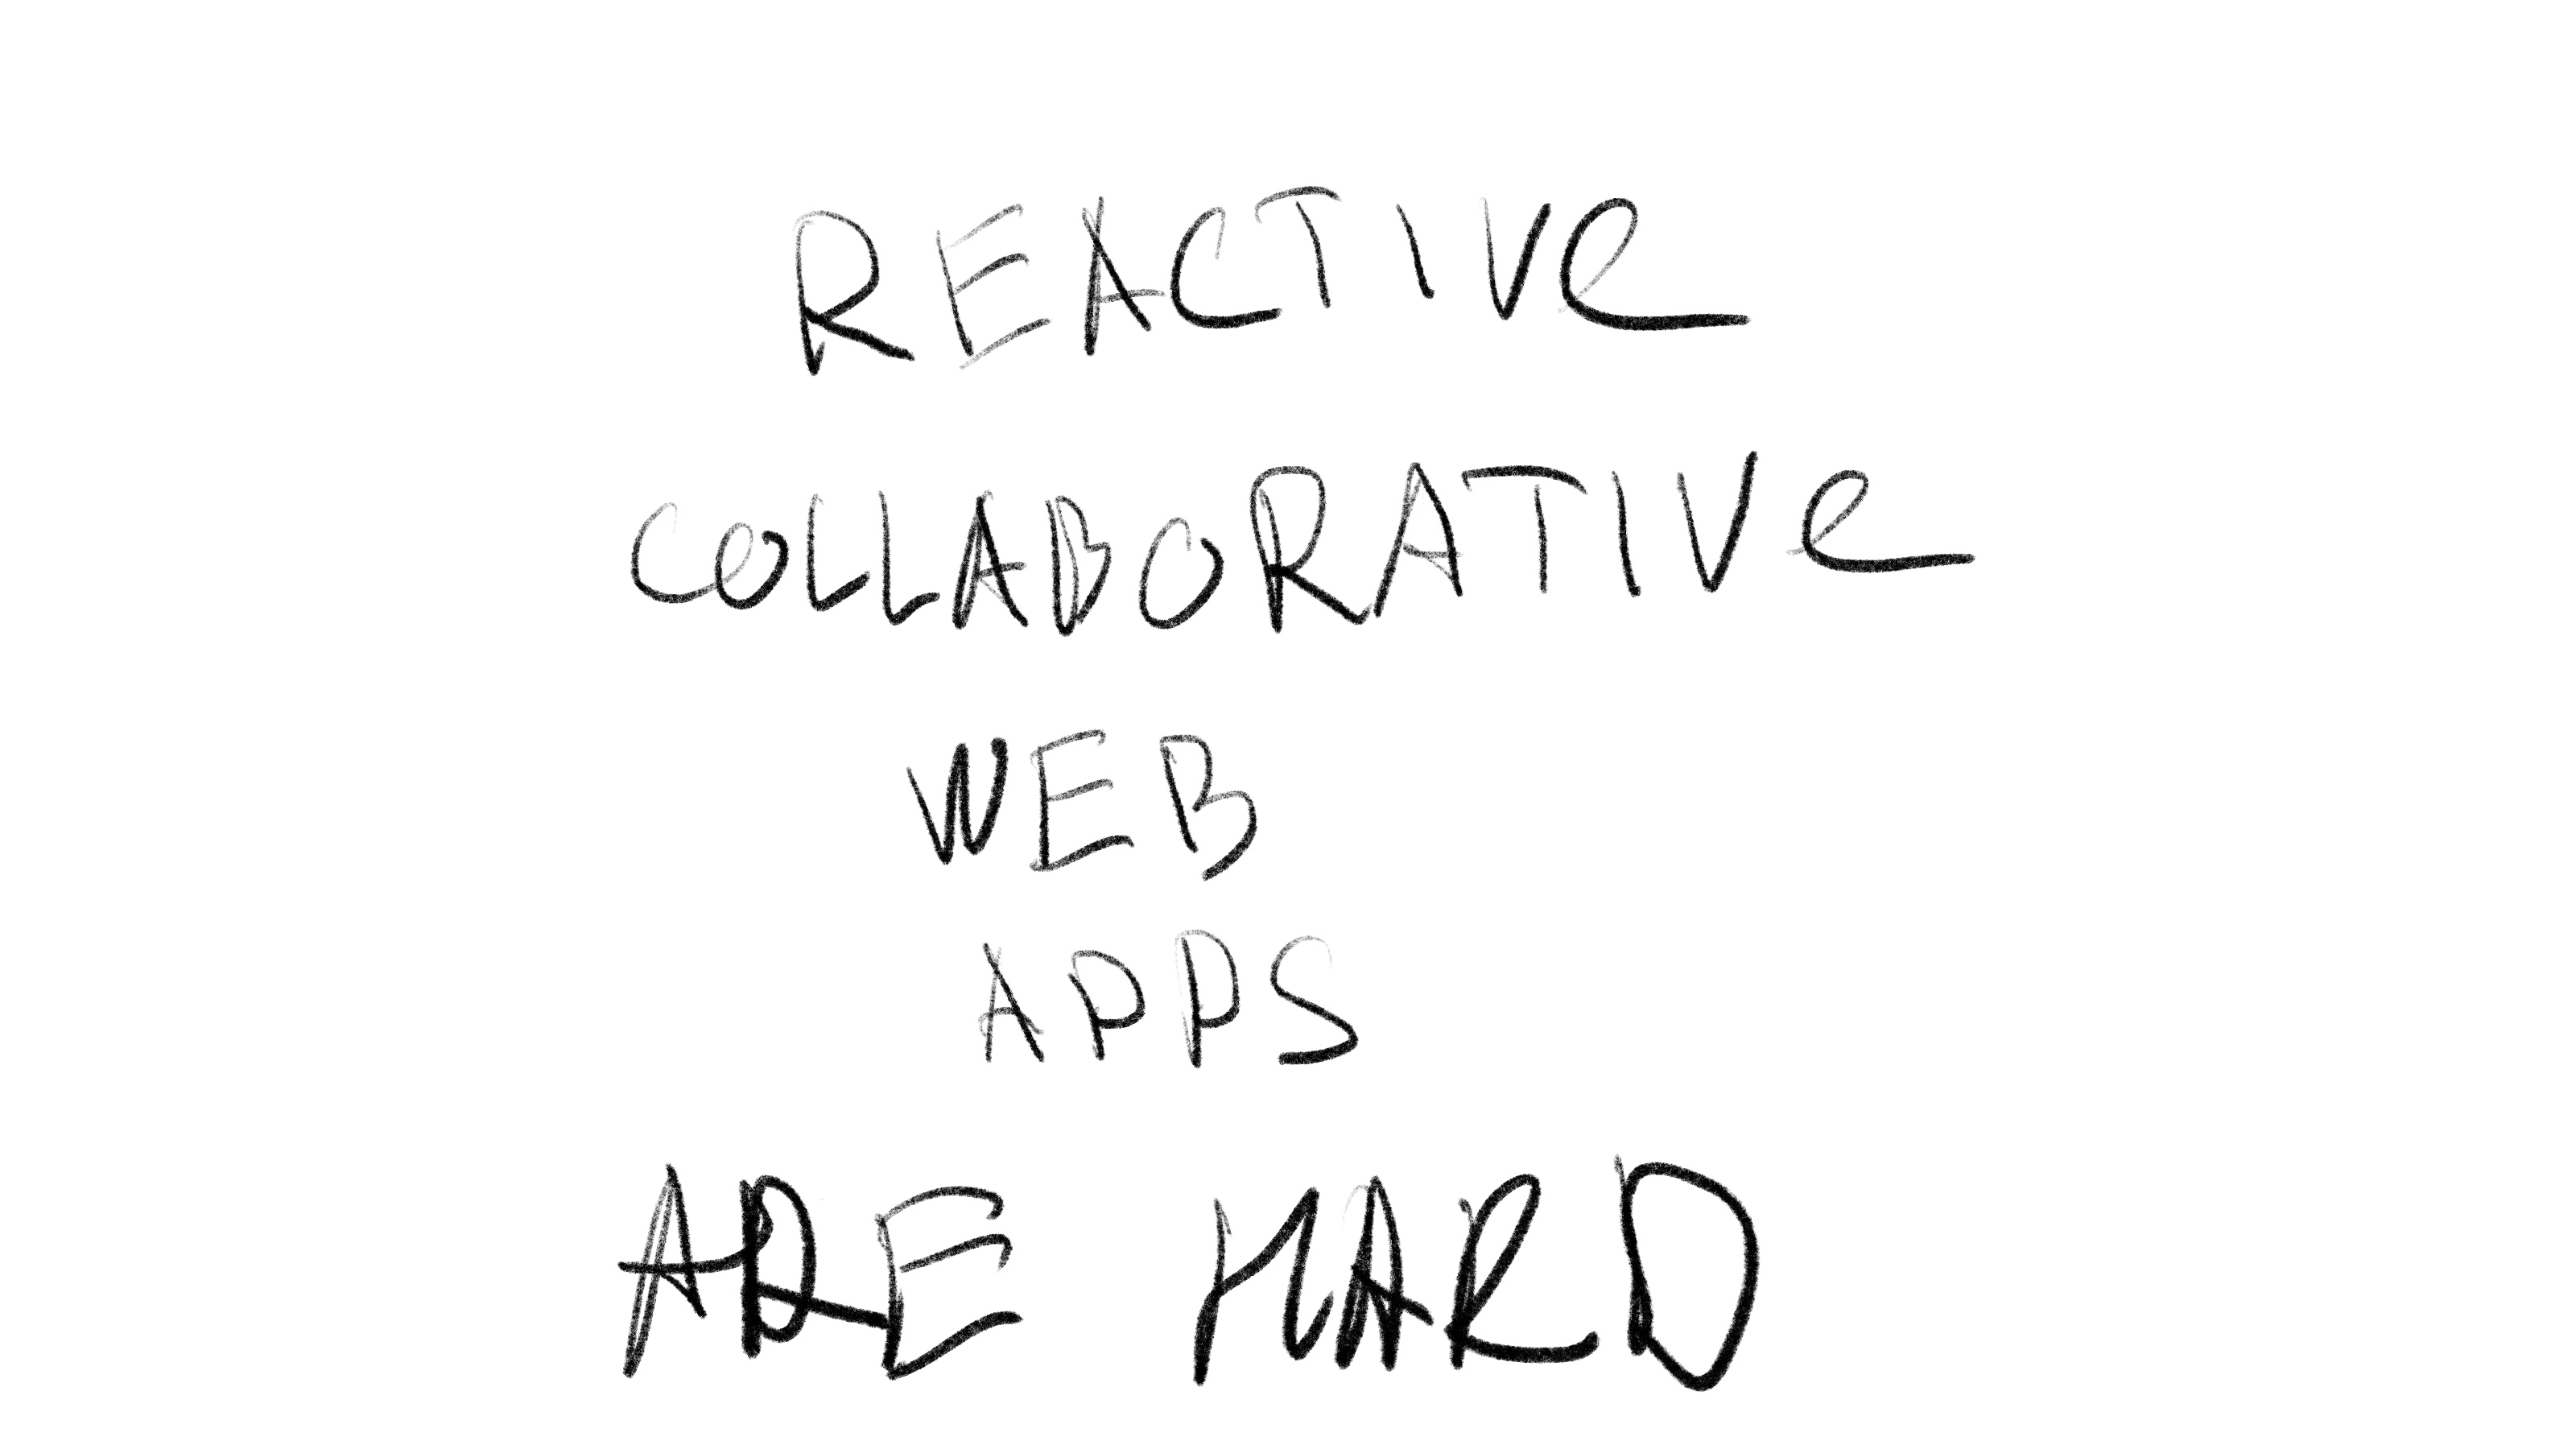 REACTIVe
COLLABORATIVe
WEB
APPS
ARE HARD